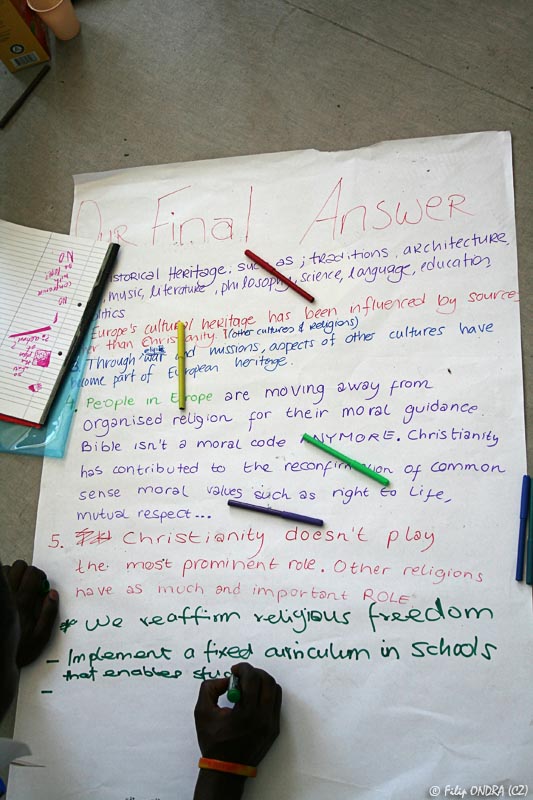 Our Final Answer
Historical Heritage. such as; traditions, architecture,
music, literature, philosophy, science, language, education,
Europe's cultural heritage has been influenced by
than Christianity. (other cultures & religions)
3. Through war and missions, aspects of other cultures have
become part of European heritage.
4. People in Europe are moving away from
organised religion for their moral guidance.
Bible isn't a moral code ANYMORE. Christianity
has contributed to the reconfirmation of common
sense moral values such as right to life,
mutual respect...
5. Christianity doesn't play
the most prominent role. Other religions
have as much and important ROLE
* We reaffirm religious freedom
- Implement a fixed curriculum in schools
that enables
-
© Filip ONDRA (CZ)